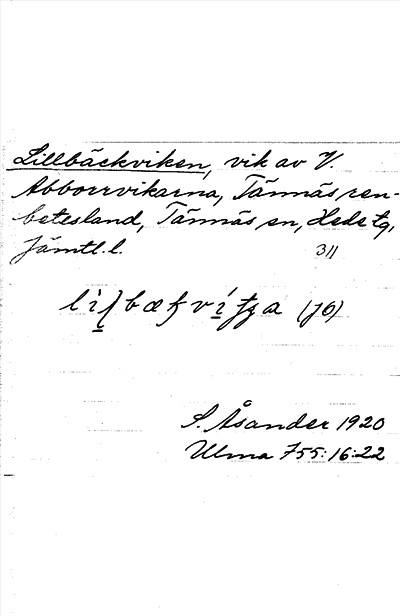 Lillbäckviken, vik av V.
Abborrvikarna, Tännäs ren-
betesland, Tännäs sn, Hede tg,
Jämtl. l. 311
(16)
S. Åsander 1920
Ulma 755:16:22